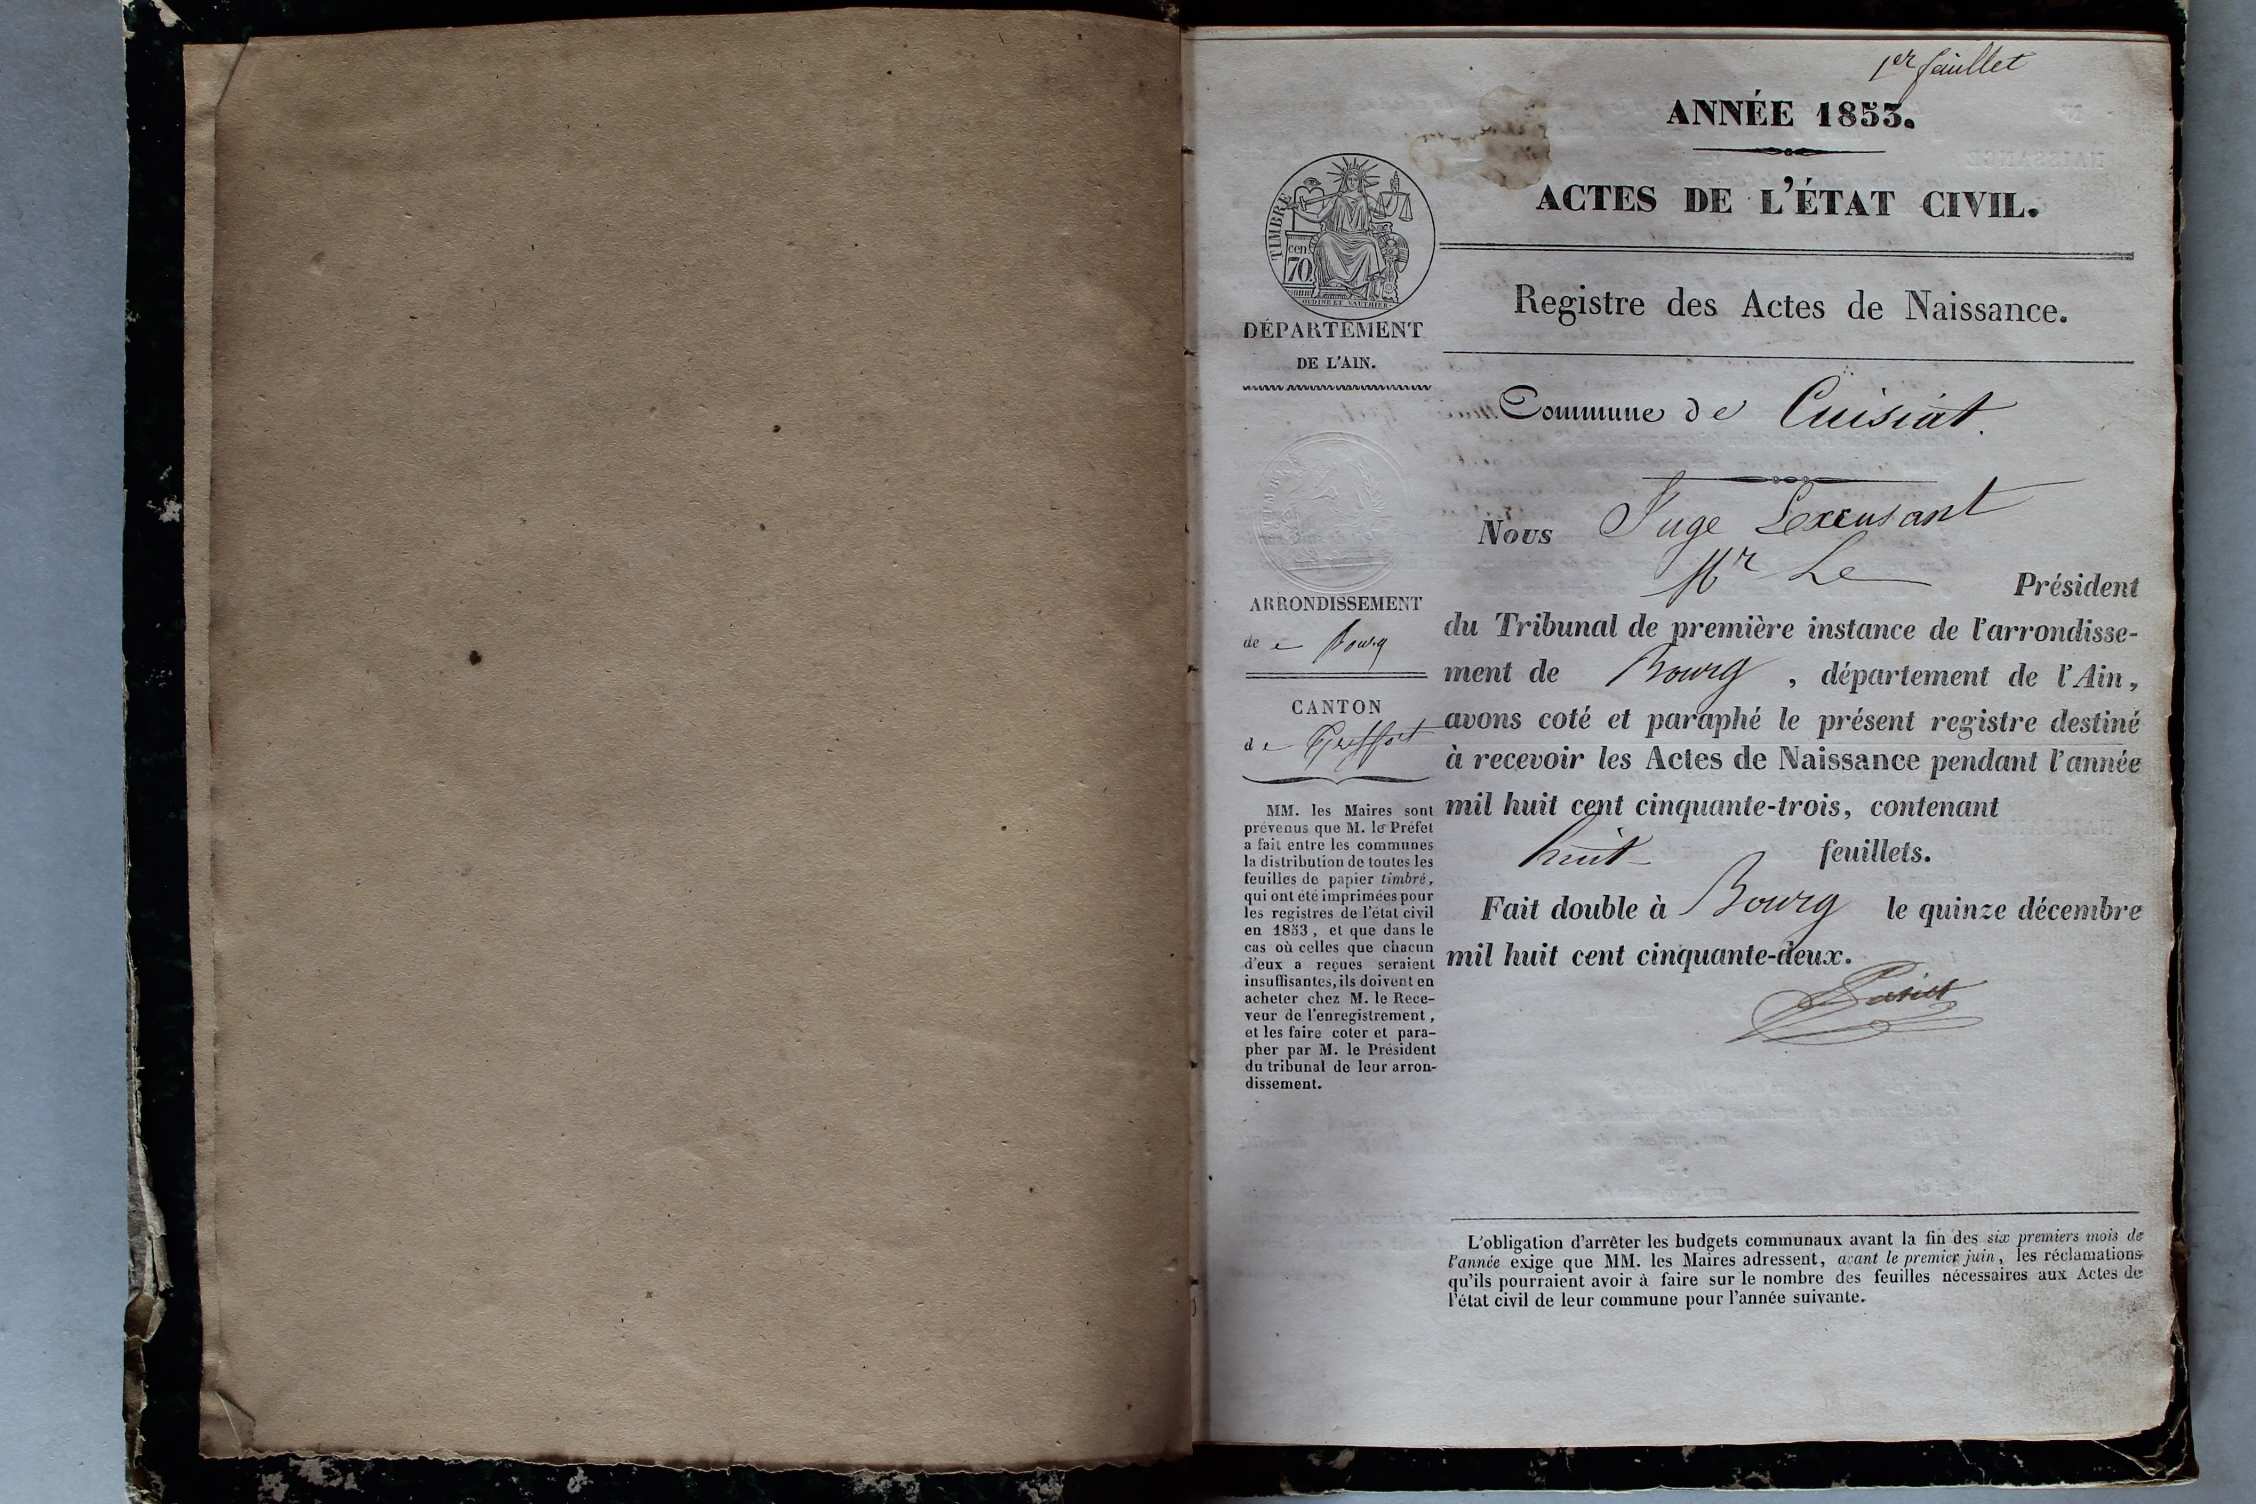 1er feuillet
ANNÉE 1853.
ACTES DE L'ÉTAT CIVIL.
TIMBRE
cen.
70
OUDINÉ ET GAUTHIER
DÉPARTEMENT
DE L'AIN.
Registre des Actes de Naissance.
Commune de Cuisiat.
TIMBRE
ARRONDISSEMENT
de Bourg
CANTON
de Treffort
MM. les Maires sont
prévenus que M. le Préfet
a fait entre les communes
la distribution de toutes les
feuilles de papier timbré,
qui ont été imprimées pour
les registres de l'état civil
en 1853, et que dans le
cas où celles que chacun
d'eux a reçues seraient
insuffisantes, ils doivent en
acheter chez M. le Rece-
veur de l'enregistrement,
et les faire coter et para-
pher par M. le Président
du tribunal de leur arron-
dissement.
Nous Juge Lexcusant
Mr Le Président
du Tribunal de première instance de l'arrondisse-
ment de Bourg, département de l'Ain,
avons coté et paraphé le présent registre destiné
à recevoir les Actes de Naissance pendant l'année
mil huit cent cinquante-trois, contenant
huit feuillets.
Fait double à Bourg le quinze décembre
mil huit cent cinquante-deux.
L'obligation d'arrêter les budgets communaux avant la fin des six premiers mois de
l'année exige que MM. les Maires adressent, avant le premier juin, les réclamations
qu'ils pourraient avoir à faire sur le nombre des feuilles nécessaires aux Actes de
l'état civil de leur commune pour l'année suivante.